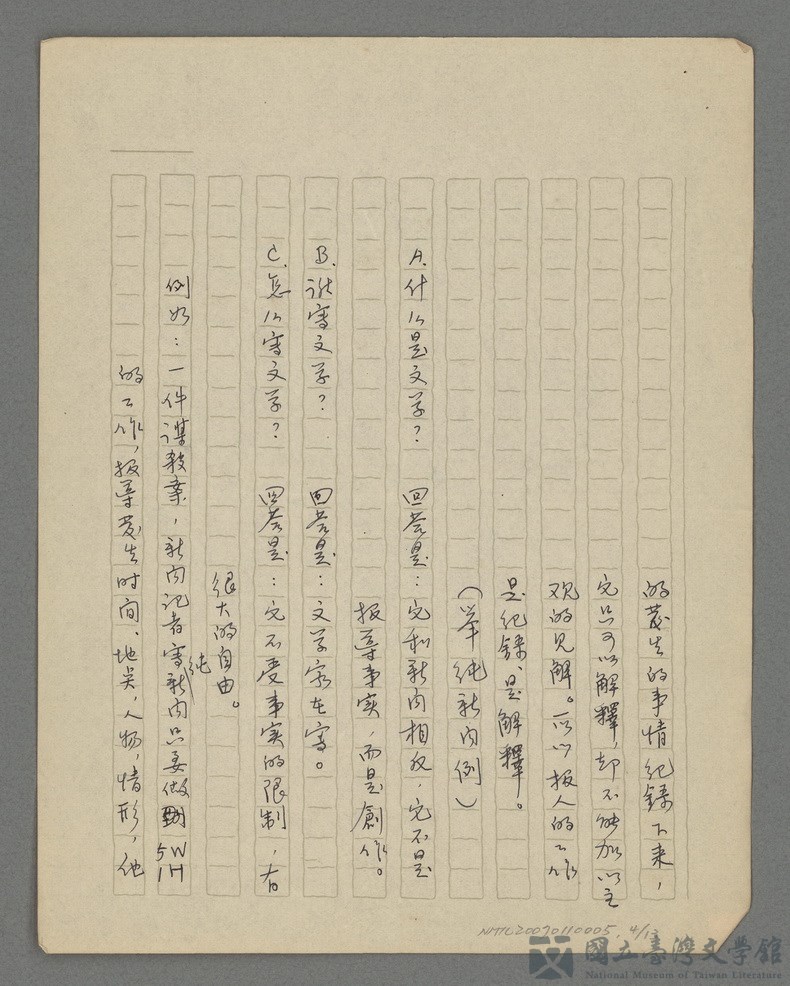 的發生的事情紀錄下来，
它只可以解釋，却不能加以主
观的见解。所以报人的工作
是纪錄、是解釋。
（举純新闻例）
A. 什么是文学？ 回答是：它和新闻相反，它不是
报導事实，而是創作。
B. 谁写文学？ 回答是：文学家在写。
C. 怎么写文学？ 回答是：它不受事实的限制，有
很大的自由。
例如：一件谋殺案，新闻记者写純新闻只要做到5W1H
的工作，报導發生时间、地奌，人物，情形，他
NMTL20070110005, 4/13
國立臺灣文學館
National Museum of Taiwan Literature